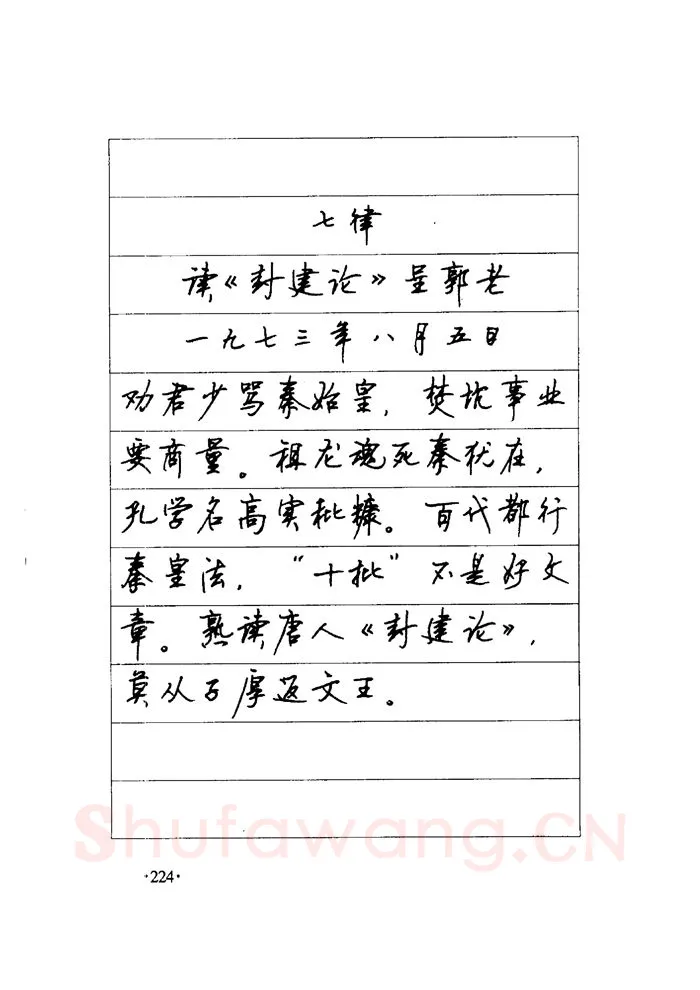 七律
读《封建论》呈郭老
一九七三年八月五日
劝君少骂秦始皇，焚坑事业
要商量。祖龙魂死秦犹在，
孔学名高实秕糠。百代都行
秦皇法，“十批”不是好文
章。熟读唐人《封建论》，
莫从子厚返文王。
Shufawang.CN
·224·